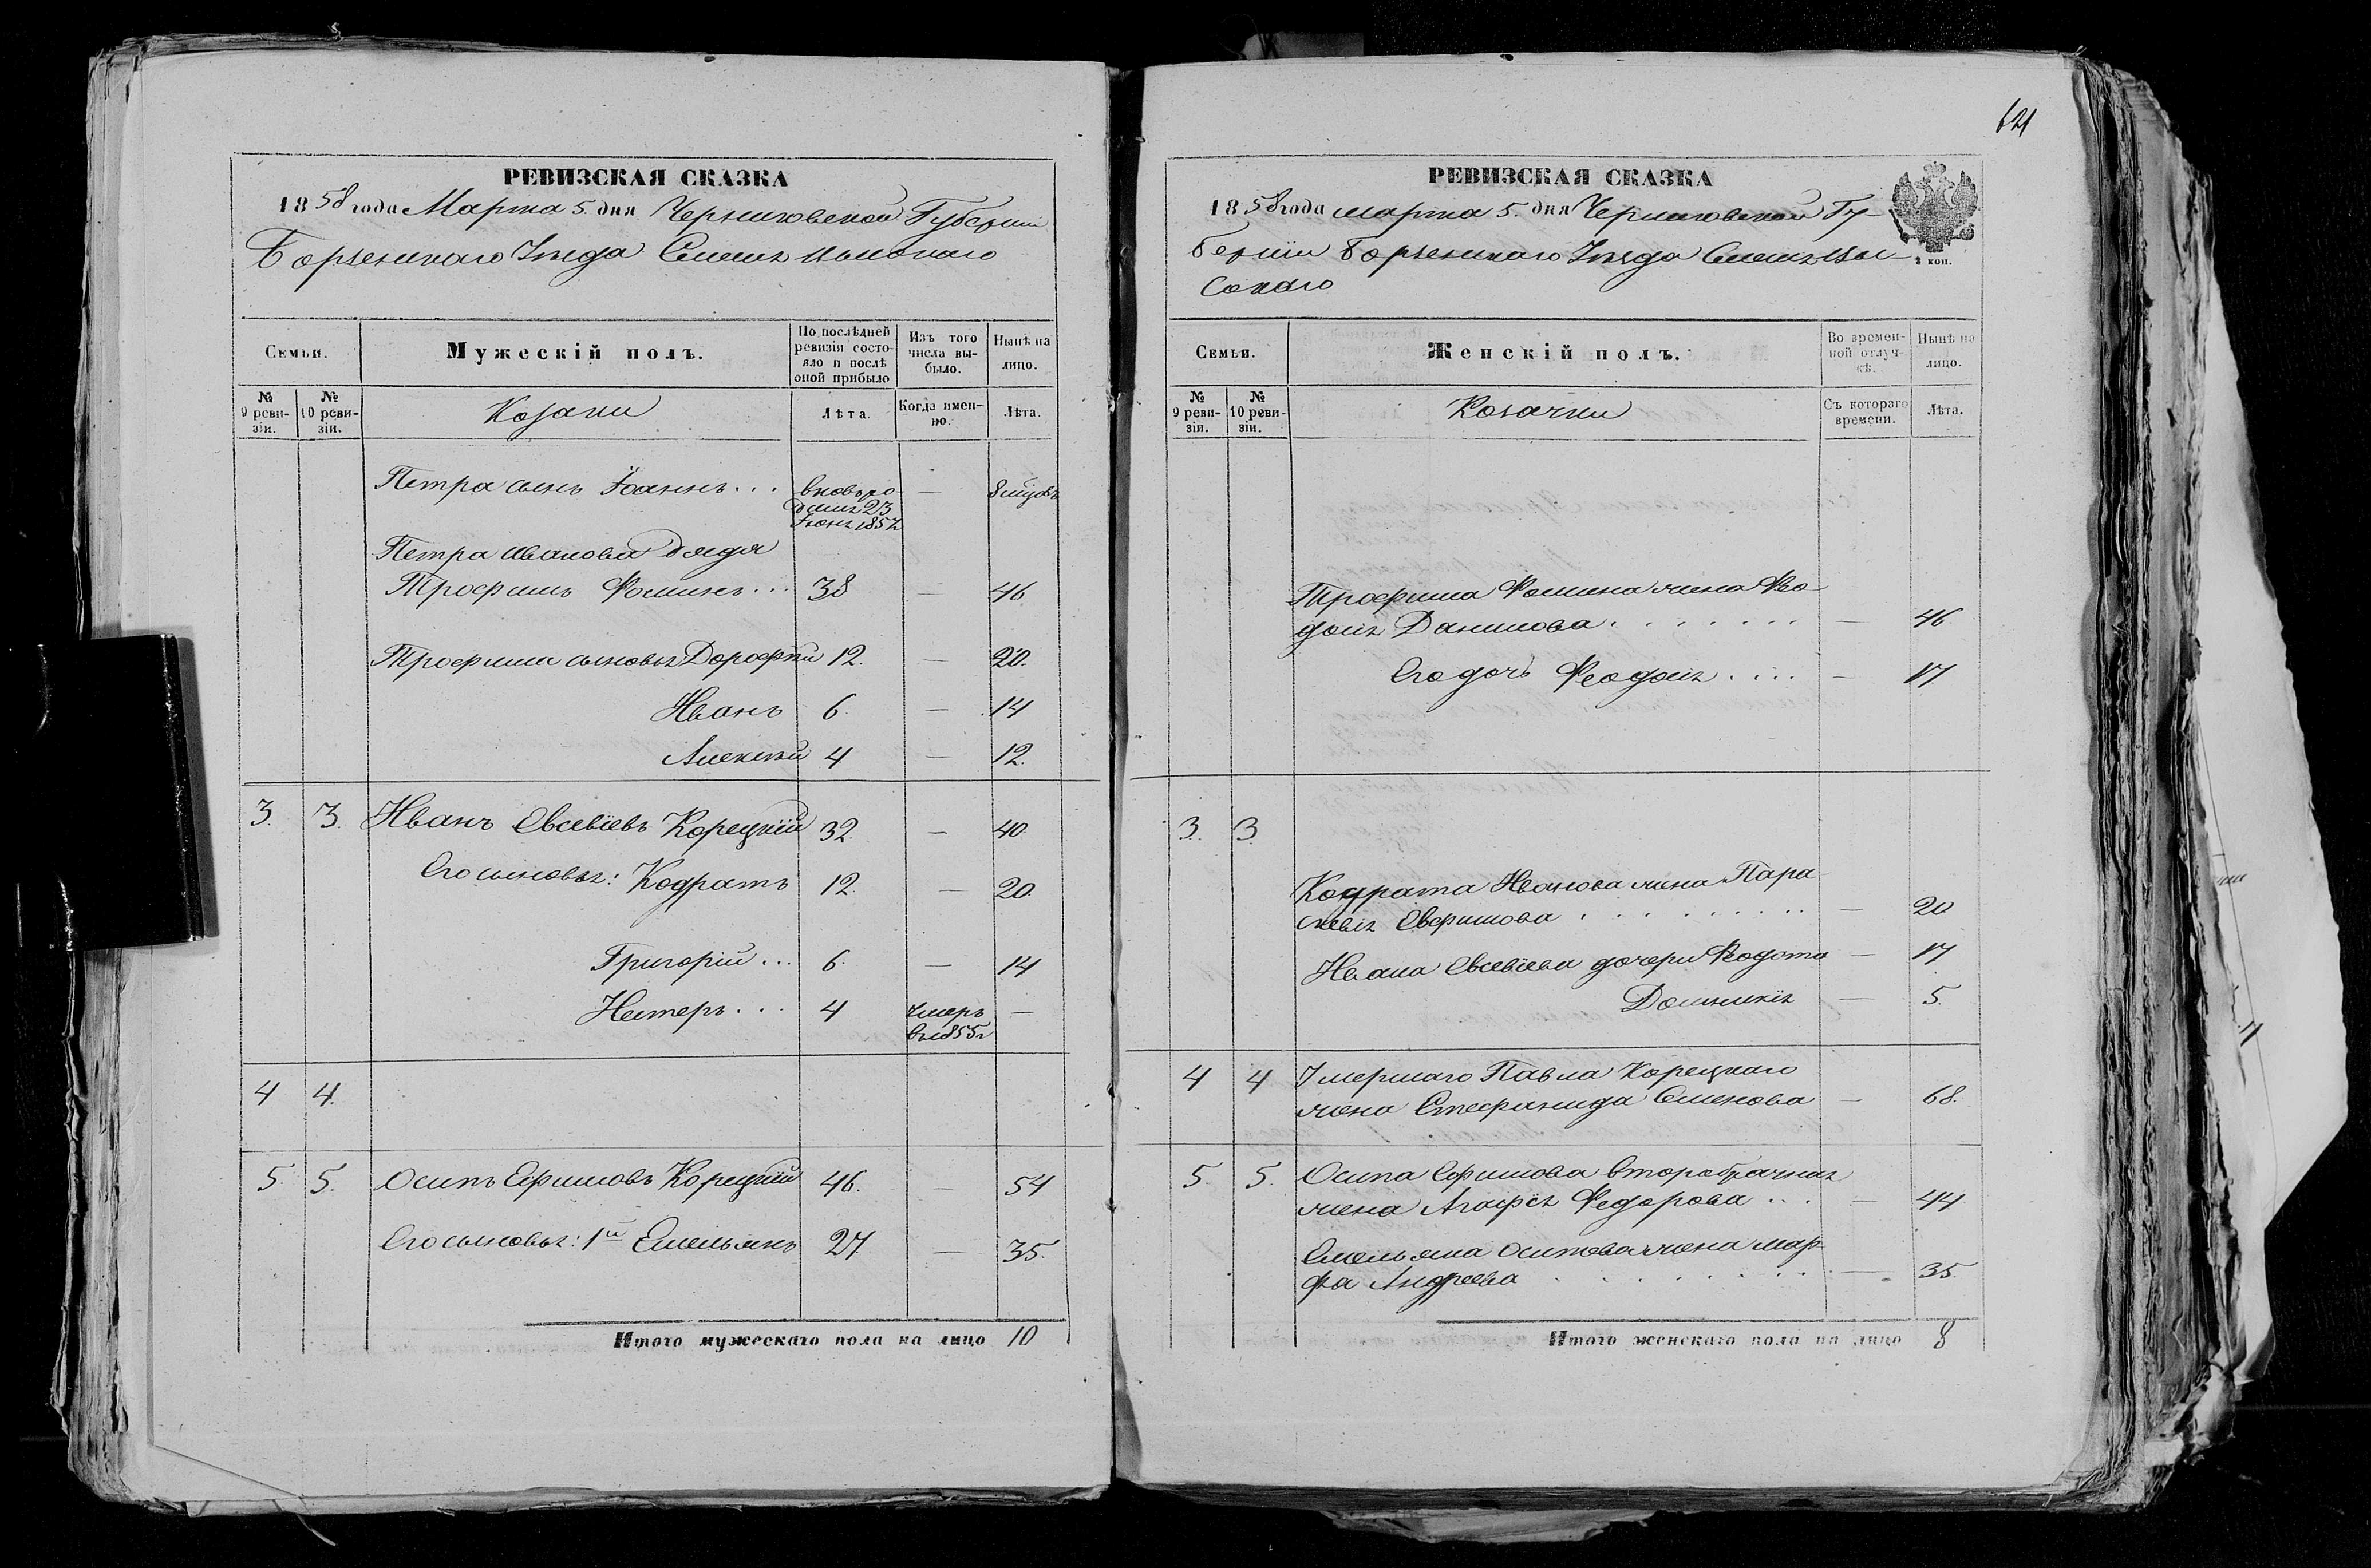 РЕВИЗСКАЯ СКАЗКА
1858 года Марта 5. дня Черниговской Губернии
Борзенскаго Уѣзда
Семьи.
Мужескій полъ.
По послѣдней ревизіи состояло и послѣ оной прибыло
Изъ того числа выбыло.
Нынѣ на лицо.
№ 9 ревизіи.
№ 10 ревизіи.
Козаки
Лѣта.
Когда именно.
Лѣта.
Петра сынъ Іоаннъ... вновьро- — 8 мцовъ
денъ 23
Іюня 1857
Петра Иванова дядя
Трофимъ Фоминъ... 38 — 46
Трофима сыновья Дорофѣй 12. — 20.
Иванъ 6. — 14
Алексѣй 4 — 12.
3. 3. Иванъ Евсевіевъ Корецкій 32. — 40
Его сыновья: Кодратъ 12. — 20.
Григорій... 6. — 14
Нестеръ... 4 умеръ —
въ 1855 г
4 4.
5. 5. Осипъ Ефимовъ Корецкій 46. — 54
Его сыновья: 1й Емельянъ 27. — 35.
Итого мужескаго пола на лицо 10
621
РЕВИЗСКАЯ СКАЗКА
1858 года марта 5. дня Черниговской Гу-
берніи Борзенскаго Уѣзда
2 коп.
Семьи.
Женскій полъ.
Во временной отлучкѣ.
Нынѣ на лицо.
№ 9 ревизіи.
№ 10 ревизіи.
Козачки
Съ котораго времени.
Лѣта.
Трофима Фомина жена Фео-
досія Данилова........ — 46
Его дочь Феодосія.... — 17.
3. 3.
Кодрата Иванова жена Пара
скевія Евфимова......... — 20
Ивана Евсевіева дочери Федота — 17
Домникія — 5.
4 4 Умершаго Павла Корецкаго
жена Стефанида Семенова — 68.
5. 5. Осипа Ефимова второбрачная
жена Агафія Федорова... — 44
Емельяна Осипова жена Мар-
фа Андреева........ — 35.
Итого женскаго пола на лицо 8